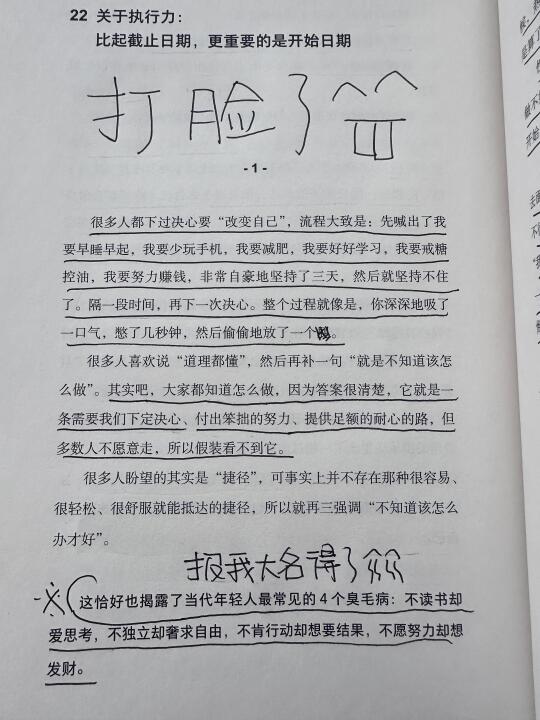 22 关于执行力：
比起截止日期，更重要的是开始日期
打脸了
- 1 -
很多人都下过决心要“改变自己”，流程大致是：先喊出了我
要早睡早起，我要少玩手机，我要减肥，我要好好学习，我要戒糖
控油，我要努力赚钱，非常自豪地坚持了三天，然后就坚持不住
了。隔一段时间，再下一次决心。整个过程就像是，你深深地吸了
一口气，憋了几秒钟，然后偷偷地放了一个。
很多人喜欢说“道理都懂”，然后再补一句“就是不知道该怎
么做”。其实吧，大家都知道怎么做，因为答案很清楚，它就是一
条需要我们下定决心、付出笨拙的努力、提供足额的耐心的路，但
多数人不愿意走，所以假装看不到它。
很多人盼望的其实是“捷径”，可事实上并不存在那种很容易、
很轻松、很舒服就能抵达的捷径，所以就再三强调“不知道该怎么
办才好”。
报我大名得了
这恰好也揭露了当代年轻人最常见的 4 个臭毛病：不读书却
爱思考，不独立却奢求自由，不肯行动却想要结果，不愿努力却想
发财。